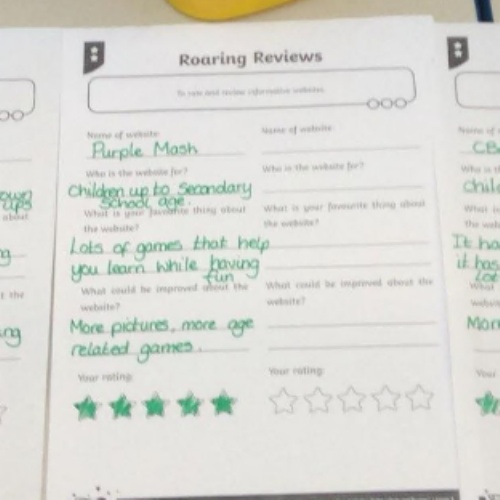 Roaring Reviews
To rate and review informative websites.
Name of website:
Purple Mash
Who is the website for?
Children up to Secondary
School age.
What is your favourite thing about
the website?
Lots of games that help
you learn while having
fun
What could be improved about the
website?
More pictures, more age
related games.
Your rating:
Name of website:
Who is the website for?
What is your favourite thing about
the website?
What could be improved about the
website?
Your rating:
own
ups
about
t the
Name of
CB
Who is th
Chil
What
the web
It ha
it has
What
websi
Mor
Your